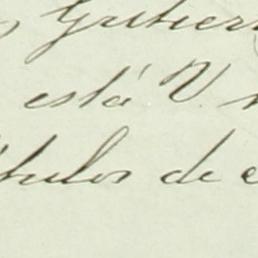 Gutierr
está V.
títulos de